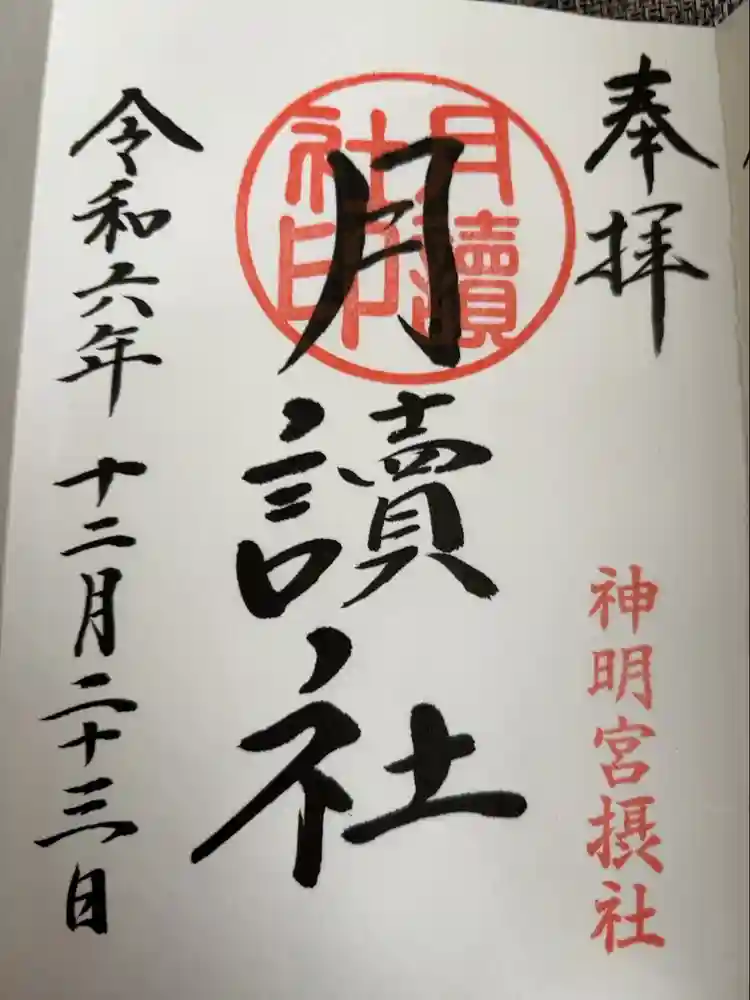 奉拝
神明宮摂社
月讀社印
月讀社
令和六年 十二月二十三日